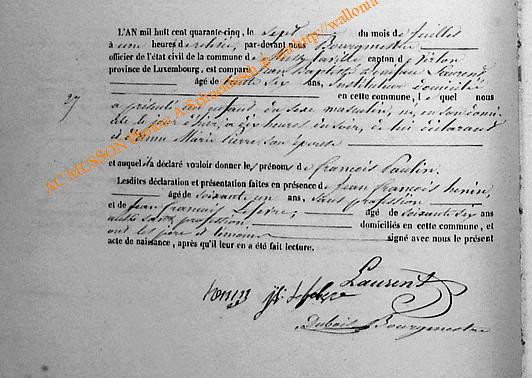 L'AN mil huit cent quarante-cinq, le sept du mois de Juillet
à une heures de relevée, par-devant nous Bourgmestre
officier de l'état civil de la commune de canton de Virton
province de Luxembourg, est comparu Jean Baptiste Laurent
âgé de trente six ans, Instituteur domicilié
en cette commune, lequel nous
27
a présenté un enfant du sexe masculin, né, en son domicile
le jour d'hier, à dix heures du soir, de lui déclarant
et d'Anne Marie Pierre, son épouse
et auquel il a déclaré vouloir donner les prénoms de François Paulin.
Lesdites déclaration et présentation faites en présence de Jean François henin,
âgé de soixante un ans, sans profession
et de Jean François Lefevre, âgé de soixante six ans
aussi sans profession domiciliés en cette commune, et
ont les père et témoins signé avec nous le présent
acte de naissance, après qu'il leur en a été fait lecture.
henin jf Lefevre Laurent
Dubois Bourgmestre
AC MUSSON Photos A. Schmickrath http://wallonia